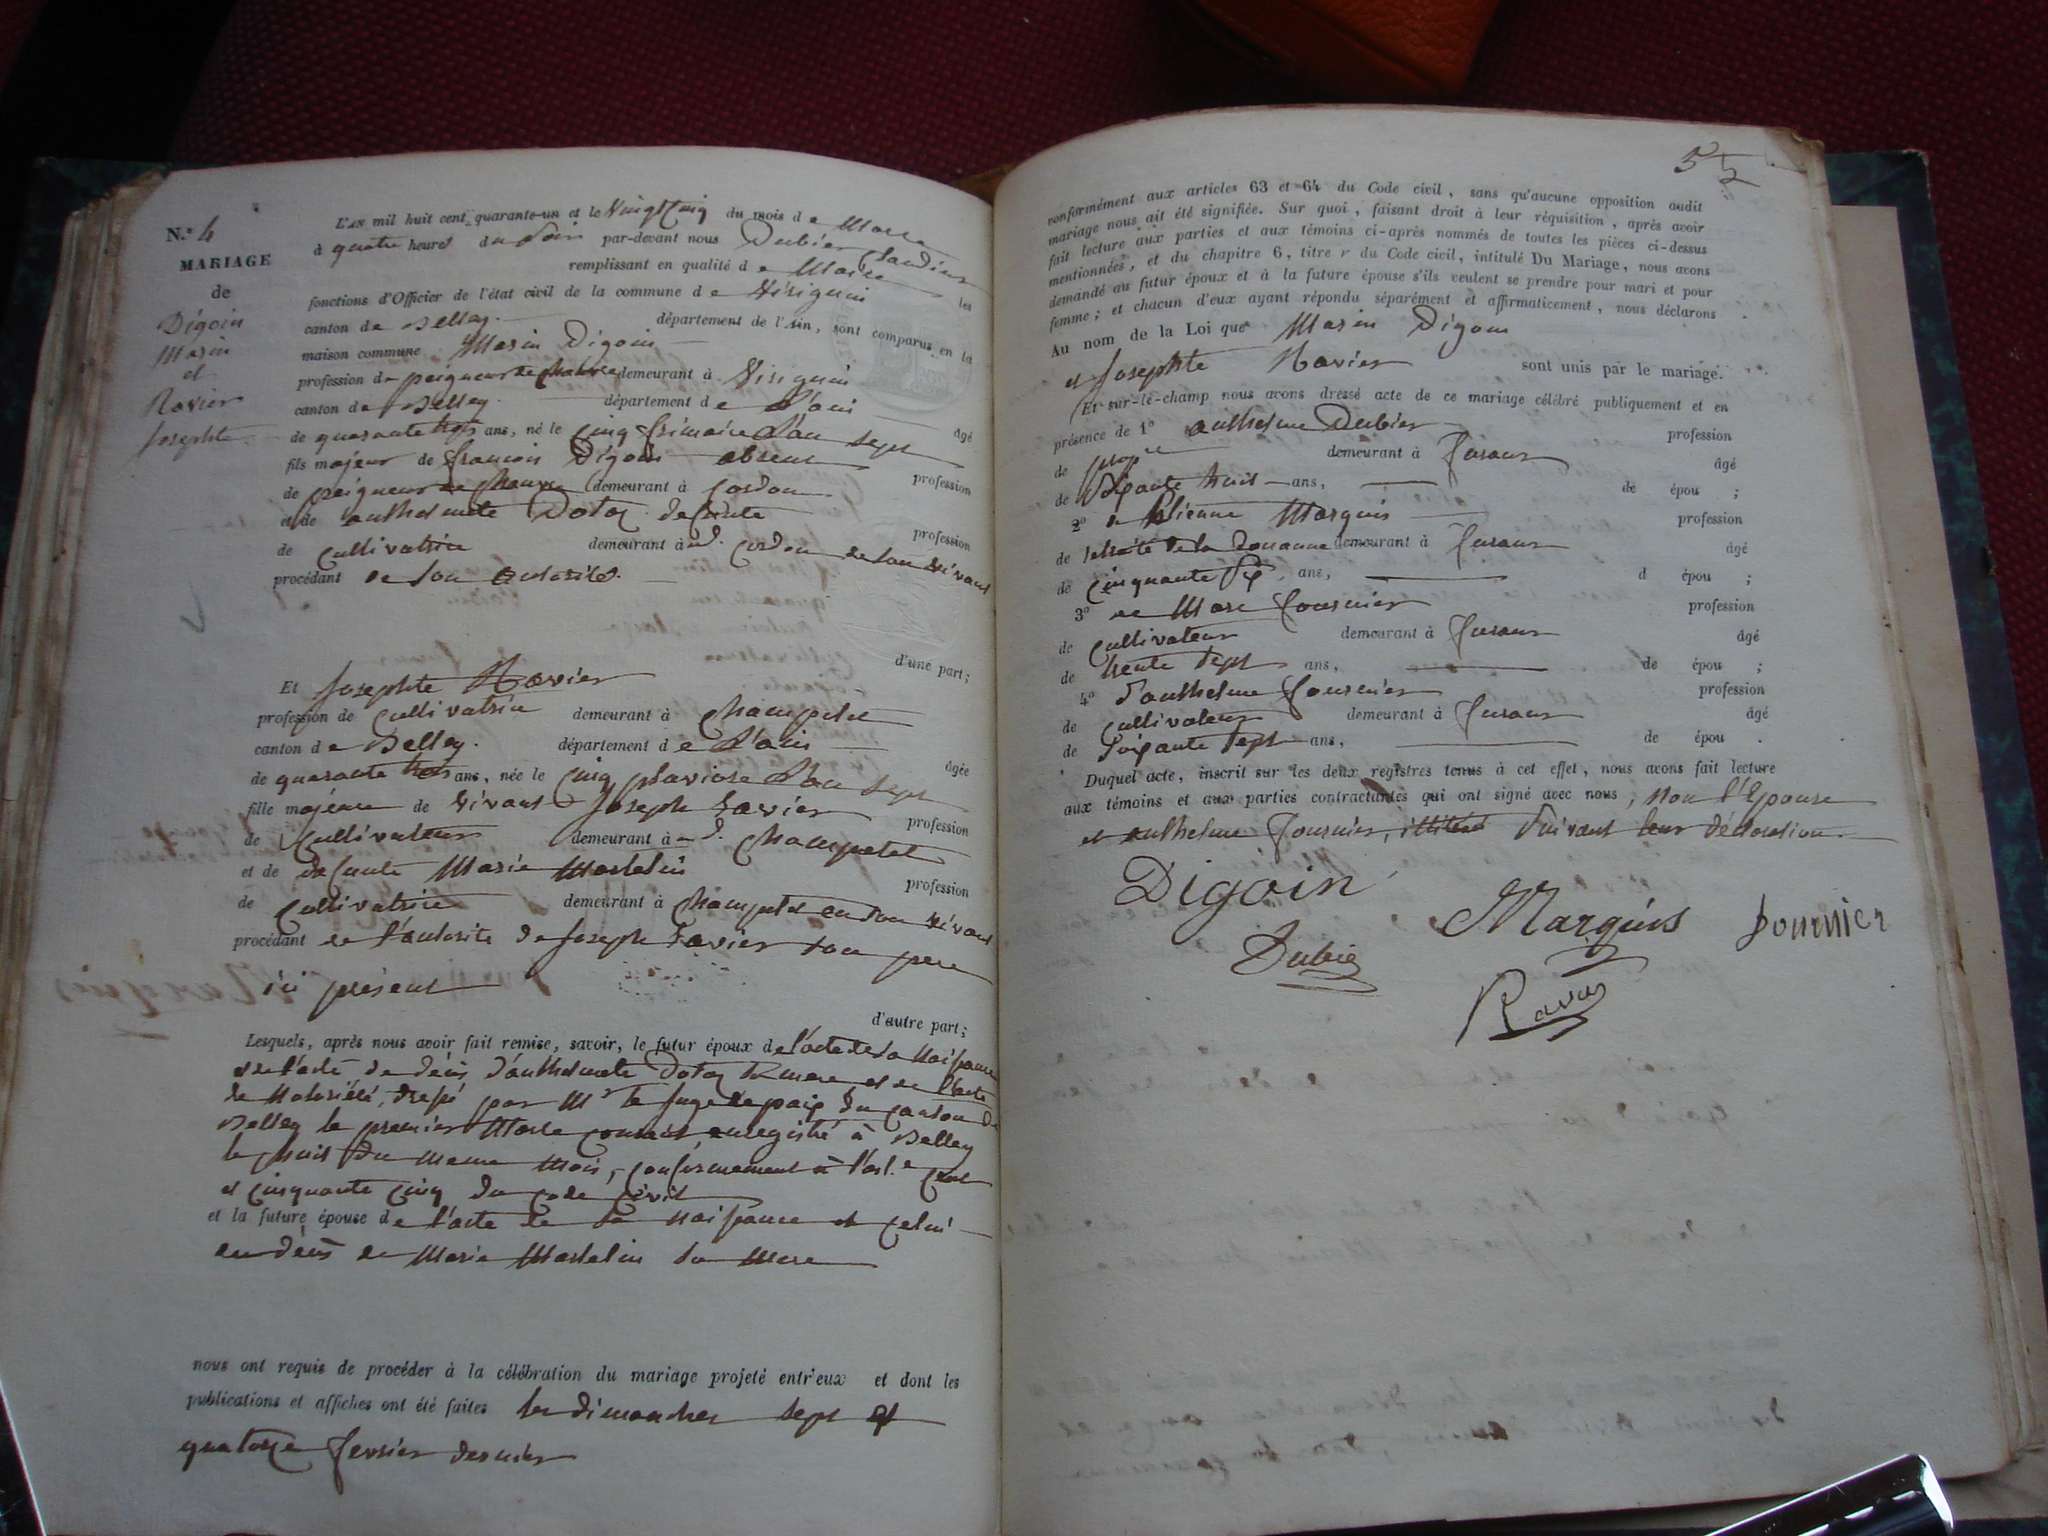 N.º 4
MARIAGE
de
Digoin
Marin
et
Ravier
Josephte
L'AN mil huit cent quarante-un et le Vingt Cinq du mois de Mars
à quatre heures du Soir par-devant nous Dubier Claudius
remplissant en qualité de Maire les
fonctions d'Officier de l'état civil de la commune de Virignin
canton de Belley. département de l'Ain, sont comparus en la
maison commune Marin Digoin
profession de peigneur de chanvre demeurant à Virignin
canton de Belley département de L'ain âgé
de quarante trois ans, né le Cinq frimaire L'an Sept
fils majeur de françois Digoin absent profession
de peigneur de chanvre demeurant à Cordon
et de anthelmete Dolet defunte profession
de Cultivatrice demeurant à ud. Cordon de son vivant
procédant de son autorité.
d'une part;
Et Josephte Ravier
profession de Cultivatrice demeurant à Champtel
canton de Belley. département de L'ain âgée
de quarante trois ans, née le Cinq pluviose L'an Sept
fille majeure de vivant Joseph Ravier profession
de Cultivateur demeurant à ud. Champtel
et de defunte Marie Martelin profession
de Cultivatrice demeurant à Champtel en son vivant
procédant de l'autorité de Joseph Ravier son pere
ici présent
d'autre part;
Lesquels, après nous avoir fait remise, savoir, le futur époux de l'acte de sa Naissance
de l'acte de décès d'anthelmete Dolet sa mere et de l'acte
de Notoriété, dressé par Mr le Juge de paix du canton de
Belley le premier Mars courant, enregistré à Belley
le huit du meme Mois, conformement à l'art. e Cent
et cinquante cinq du Code Civil
et la future épouse de l'acte de sa Naissance et celui
du décès de Marie Martelin sa Mere
nous ont requis de procéder à la célébration du mariage projeté entr'eux et dont les
publications et affiches ont été faites les dimanches sept et
quatorze fevrier dernier
5
conformément aux articles 63 et 64 du Code civil, sans qu'aucune opposition audit
mariage nous ait été signifiée. Sur quoi, faisant droit à leur réquisition, après avoir
fait lecture aux parties et aux témoins ci-après nommés de toutes les pièces ci-dessus
mentionnées, et du chapitre 6, titre v du Code civil, intitulé Du Mariage, nous avons
demandé au futur époux et à la future épouse s'ils veulent se prendre pour mari et pour
femme; et chacun d'eux ayant répondu séparément et affirmaticement, nous déclarons
Au nom de la Loi que Marin Digoin
et Josephte Ravier sont unis par le mariage.
Et sur-le-champ nous avons dressé acte de ce mariage célébré publiquement et en
présence de 1º anthelme Dubier profession
de propre demeurant à âgé
de Soixante trois ans, de épou ;
2º de Etienne Marquis profession
de retraité de la Douanne demeurant à âgé
de cinquante Six ans, d épou ;
3º de Marc fournier profession
de Cultivateur demeurant à âgé
de trente Sept ans, de épou ;
4º d'anthelme fournier profession
de Cultivateur demeurant à âgé
de Soixante Sept ans, de épou .
Duquel acte, inscrit sur les deux registres tenus à cet effet, nous avons fait lecture
aux témoins et aux parties contractantes qui ont signé avec nous, Non l'Epouse
et anthelme fournier, illitérés Suivant leur déclaration.
Digoin Marquis fournier
Dubie
Ravie